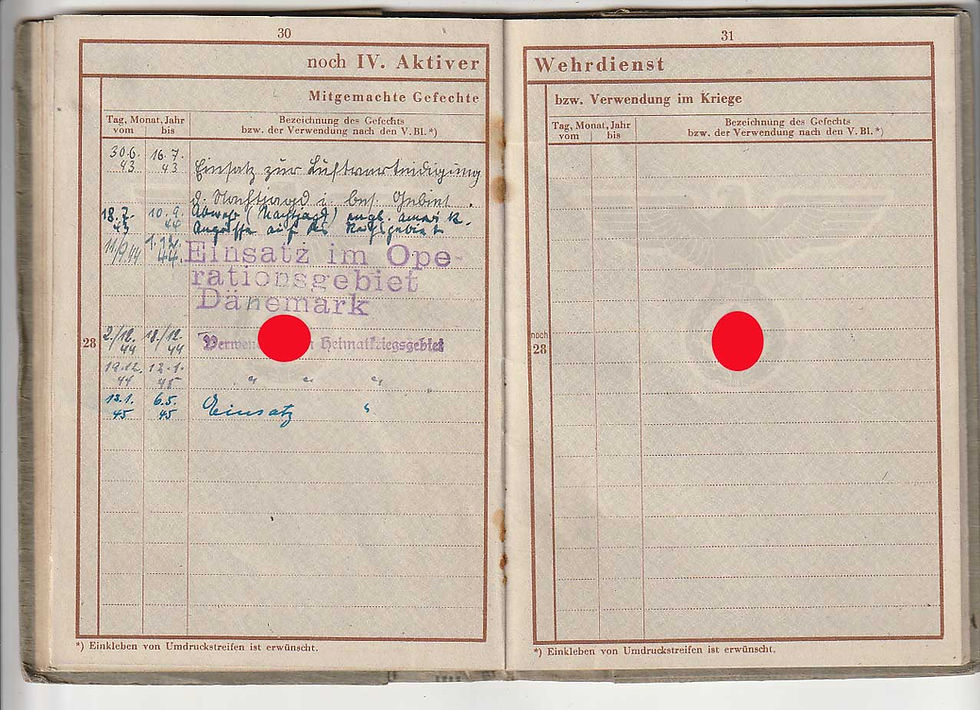 30
noch IV. Aktiver
Mitgemachte Gefechte
Tag, Monat, Jahr
vom bis
Bezeichnung des Gefechts
bzw. der Verwendung nach den V. Bl. *)
30.6. 43 16.7. 43 Einsatz zur Luftverteidigung
d. Nachtjagd i. bes. Gebiet.
18.7. 43 10.9. 44 Abwehr (Nachtjagd) engl. amerik.
Angriffe auf das Reichsgebiet
11/9 44 1.12. 44. Einsatz im Ope-
rationsgebiet
Dänemark
28
2./12. 44 18./12. 44 Heimatkriegsgebiet
19.12. 44 12.1. 45 " " "
13.1. 45 6.5. 45 Einsatz "
*) Einkleben von Umdruckstreifen ist erwünscht.
31
Wehrdienst
bzw. Verwendung im Kriege
Tag, Monat, Jahr
vom bis
Bezeichnung des Gefechts
bzw. der Verwendung nach den V. Bl. *)
noch
28
*) Einkleben von Umdruckstreifen ist erwünscht.